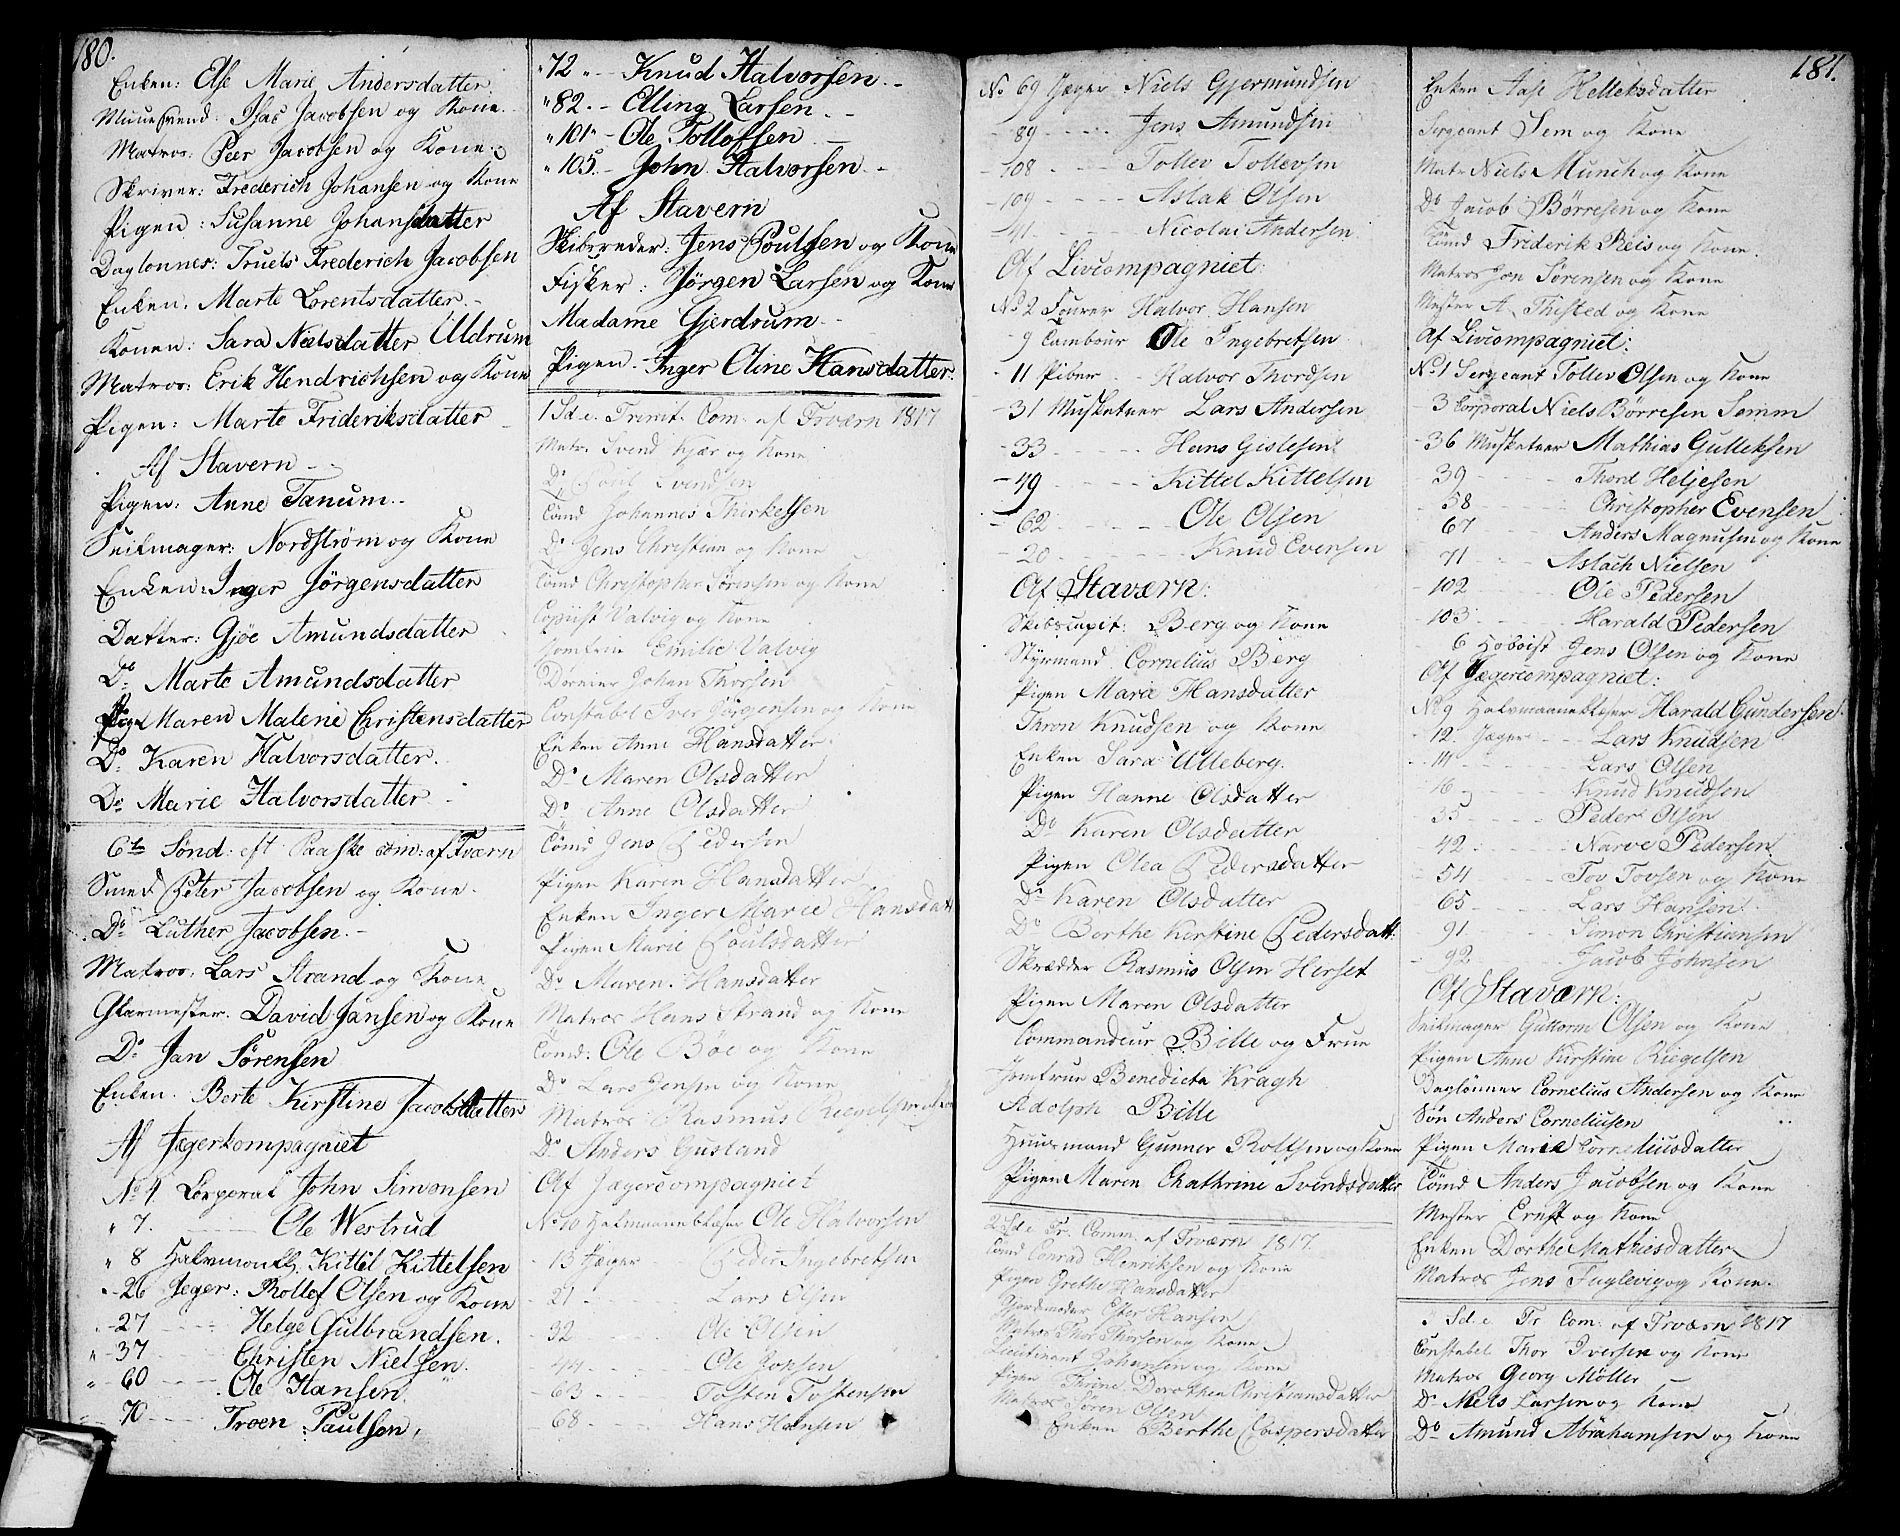 180.
Enken: Else Marie Andersdatter.
Muursvend: Isac Jacobsen og Kone.
Matros: Peer Jacobsen og Kone.
Skriver: Frederich Johansen og Kone
Pigen: Susanne Johansdatter
Daglonner: Truels Frederich Jacobsen
Enken. Marte Lorentsdatter.
Konen: Sara Nielsdatter Uldrum
Matros: Erik Hendrichsen og Kone
Pigen: Marte Frideriksdatter
Af Stavern
Pigen: Anne Tanum.
Seilmager: Nordstrøm og Kone
Enken: Inger Jörgensdatter
Datter: Gjöe Amundsdatter
Do Marte Amundsdatter
Pige Maren Malene Christensdatter
Do Karen Halvorsdatter.
Do Marie Halvorsdatter
6te Sønd: eft Paaske com: af Fværn
Smed Peter Jacobsen og Kone.
Do Luther Jacobsen.
Matros: Lars Strand og Kone
Glarmester. David Jansen og Kone
Do Jan Sörensen
Enken. Berte Kirstine Jacobsdatter
Af Jegerkompagniet
No 4 Corporal John Simonsen
" 7. Ole Westrud
" 8 Kittil Kittelsen
" 26 Jeger: Rollef Olsen og Kone
- 27 Helge Gulbrandsen.
" 37 Christen Nielsen.
" 60 Ole Hansen.
70 Troen Paulsen,
" 72 " - Knud Halvorsen.
" 82. - Elling Larsen
" 101 " - Ole Tollofsen
" 105. - John Halvorsen
Af Stavern
Skibsreder: Jens Poulsen og Kone
Fisker: Jörgen Larsen og Kone
Madame Gjerdrum
Pigen. Inger Oline Hansdatter.
1 Sd. e. Trinit. Com. af Fværn 1817
Matr. Svend Kjær og Kone
Do Poul Svendsen
Tömd Johannes Thirkelsen
Do Jens Christian og Kone
Tömd Christopher Sørensen og Kone
Copiist Valvig og Kone
Jomfrue Emilie Valvig
Johan Thorsen
Constabel Iver Jørgensen og Kone
Enken Anne Hansdatter
Do Maren Olsdatter
Do Anne Olsdatter
Tömd Jens Pedersen
Pigen Karen Hansdatter
Enken Inger Marie Hansdatt
Pigen Marie Poulsdatter
Do Maren Hansdatter
Matros Hans Strand og Kone
Tömd: Ole Böe og Kone
Do Lars Jensen og Kone
Matros Rasmus Riegelsen
Do Anders Gusland
Af Jagercompagniet
No 10 Halvmaaneblæser Ole Halvorsen
- 13 Jæger Peder Ingebretsen
- 21 Lars Olsen
- 32 Ole Olsen
- 44 Ole Jopsen
- 63 Tosten Tostensen
- 68 Hans Hansen
181.
No 69 Jæger Niels Gjermundsen
- 89 Jens Amundsen
- 108 Tollev Tollevsen
- 109 Aslak Olsen
- 41 Nicolai Andersen
Af Livcompagniet:
No 2 Fourer Halvor Hansen
- 9 Tambour Ole Ingebretsen
- 11 Piber Halvor Thordsen
- 31 Musketeer Lars Andersen
- 33 Hans Gislesen
- 49 Kittel Kittelsen
- 62 Ole Olsen
- 20 Knud Evensen
Af Staværn:
Skibscapit: Berg og Kone
Styrmand Cornelius Berg
Pigen Marie Hansdatter
Thron Knudsen og Kone
Enken Sara Ulleberg.
Pigen Hanne Olsdatter
Do Karen Olsdatter
Pigen Olea Pedersdatter
Do Karen Olsdatter
Do Berthe Kerstine Pedersdatt:
Skrædder Rasmus Olsen Herset
Pigen Maren Olsdatter
Commandeur Bille og Frue
Jomfrue Benedicta Kragh
Adolph Bille
Huusmand Gunner Rolfsen og Kone
Pigen Maren Chathrine Svendsdatter
2 Sd. e. Tr. Comm. af Fværn 1817.
Tömd Conrad Henriksen og Kone
Pigen Grethe Hansdatter
Gjordemoder Ester Hansen
Matros Thor Thorsen og Kone
Lieutinant Johansen og Kone
Pigen Thrine Dorothea Christiansdatter
Matros Sören Olsen
Enken Berthe Caspersdatter
Enken Aase Helleksdatter
Sergeant Sem og Kone
Matr Niels Munch og Kone
Do Jacob Börresen og Kone
Tömd Friderik Reis og Kone.
Matros Jon Sörensen og Kone
Mester A. Thisted og Kone
Af Livcompagniet:
No 1 Sergeant Tollev Olsen og Kone
- 3 Corporal Niels Börresen Semm
- 36 Musketeer Mathias Gulleksen
39 Thord Heljesen
- 58 Christopher Evensen
67 Anders Magnusen og Kone
71 Aslach Nielsen
- 102 Ole Pedersen
- 103 Harald Pedersen
6 Hoboist Jens Olsen og Kone
Af Jægercompagniet:
No 9 Halvmaaneblæser Harald Gundersen
- 12 Jæger Lars Knudsen
- 14 Lars Olsen
- 16 Knud Knudsen
- 35 Peder Olsen
- 42 Narve Pedersen
- 54 Tov Tovsen og Kone
65 Lars Hansen
- 91 Simon Christiansen
- 92 Jacob Johnsen
Af Staværn:
Seilmager Guttorm Olsen og Kone
Pigen Anne Kirstine Riegelsen
Daglönner Cornelius Andersen og Kone
Sön Anders Corneliusen
Pigen Marie Corneliusdatter
Tömd Anders Jacobsen og Kone
Mester Ernst og Kone
Enken Dorthe Mathiesdatter
Matros Jens Fuglevig og Kone.
Sd. e Tr Com: af Fværn 1817
Constabel Thor Iversen og Kone
Matros Georg Möller
Do Niels Larsen og Kone
Do Amund Abrahamsen og Kone